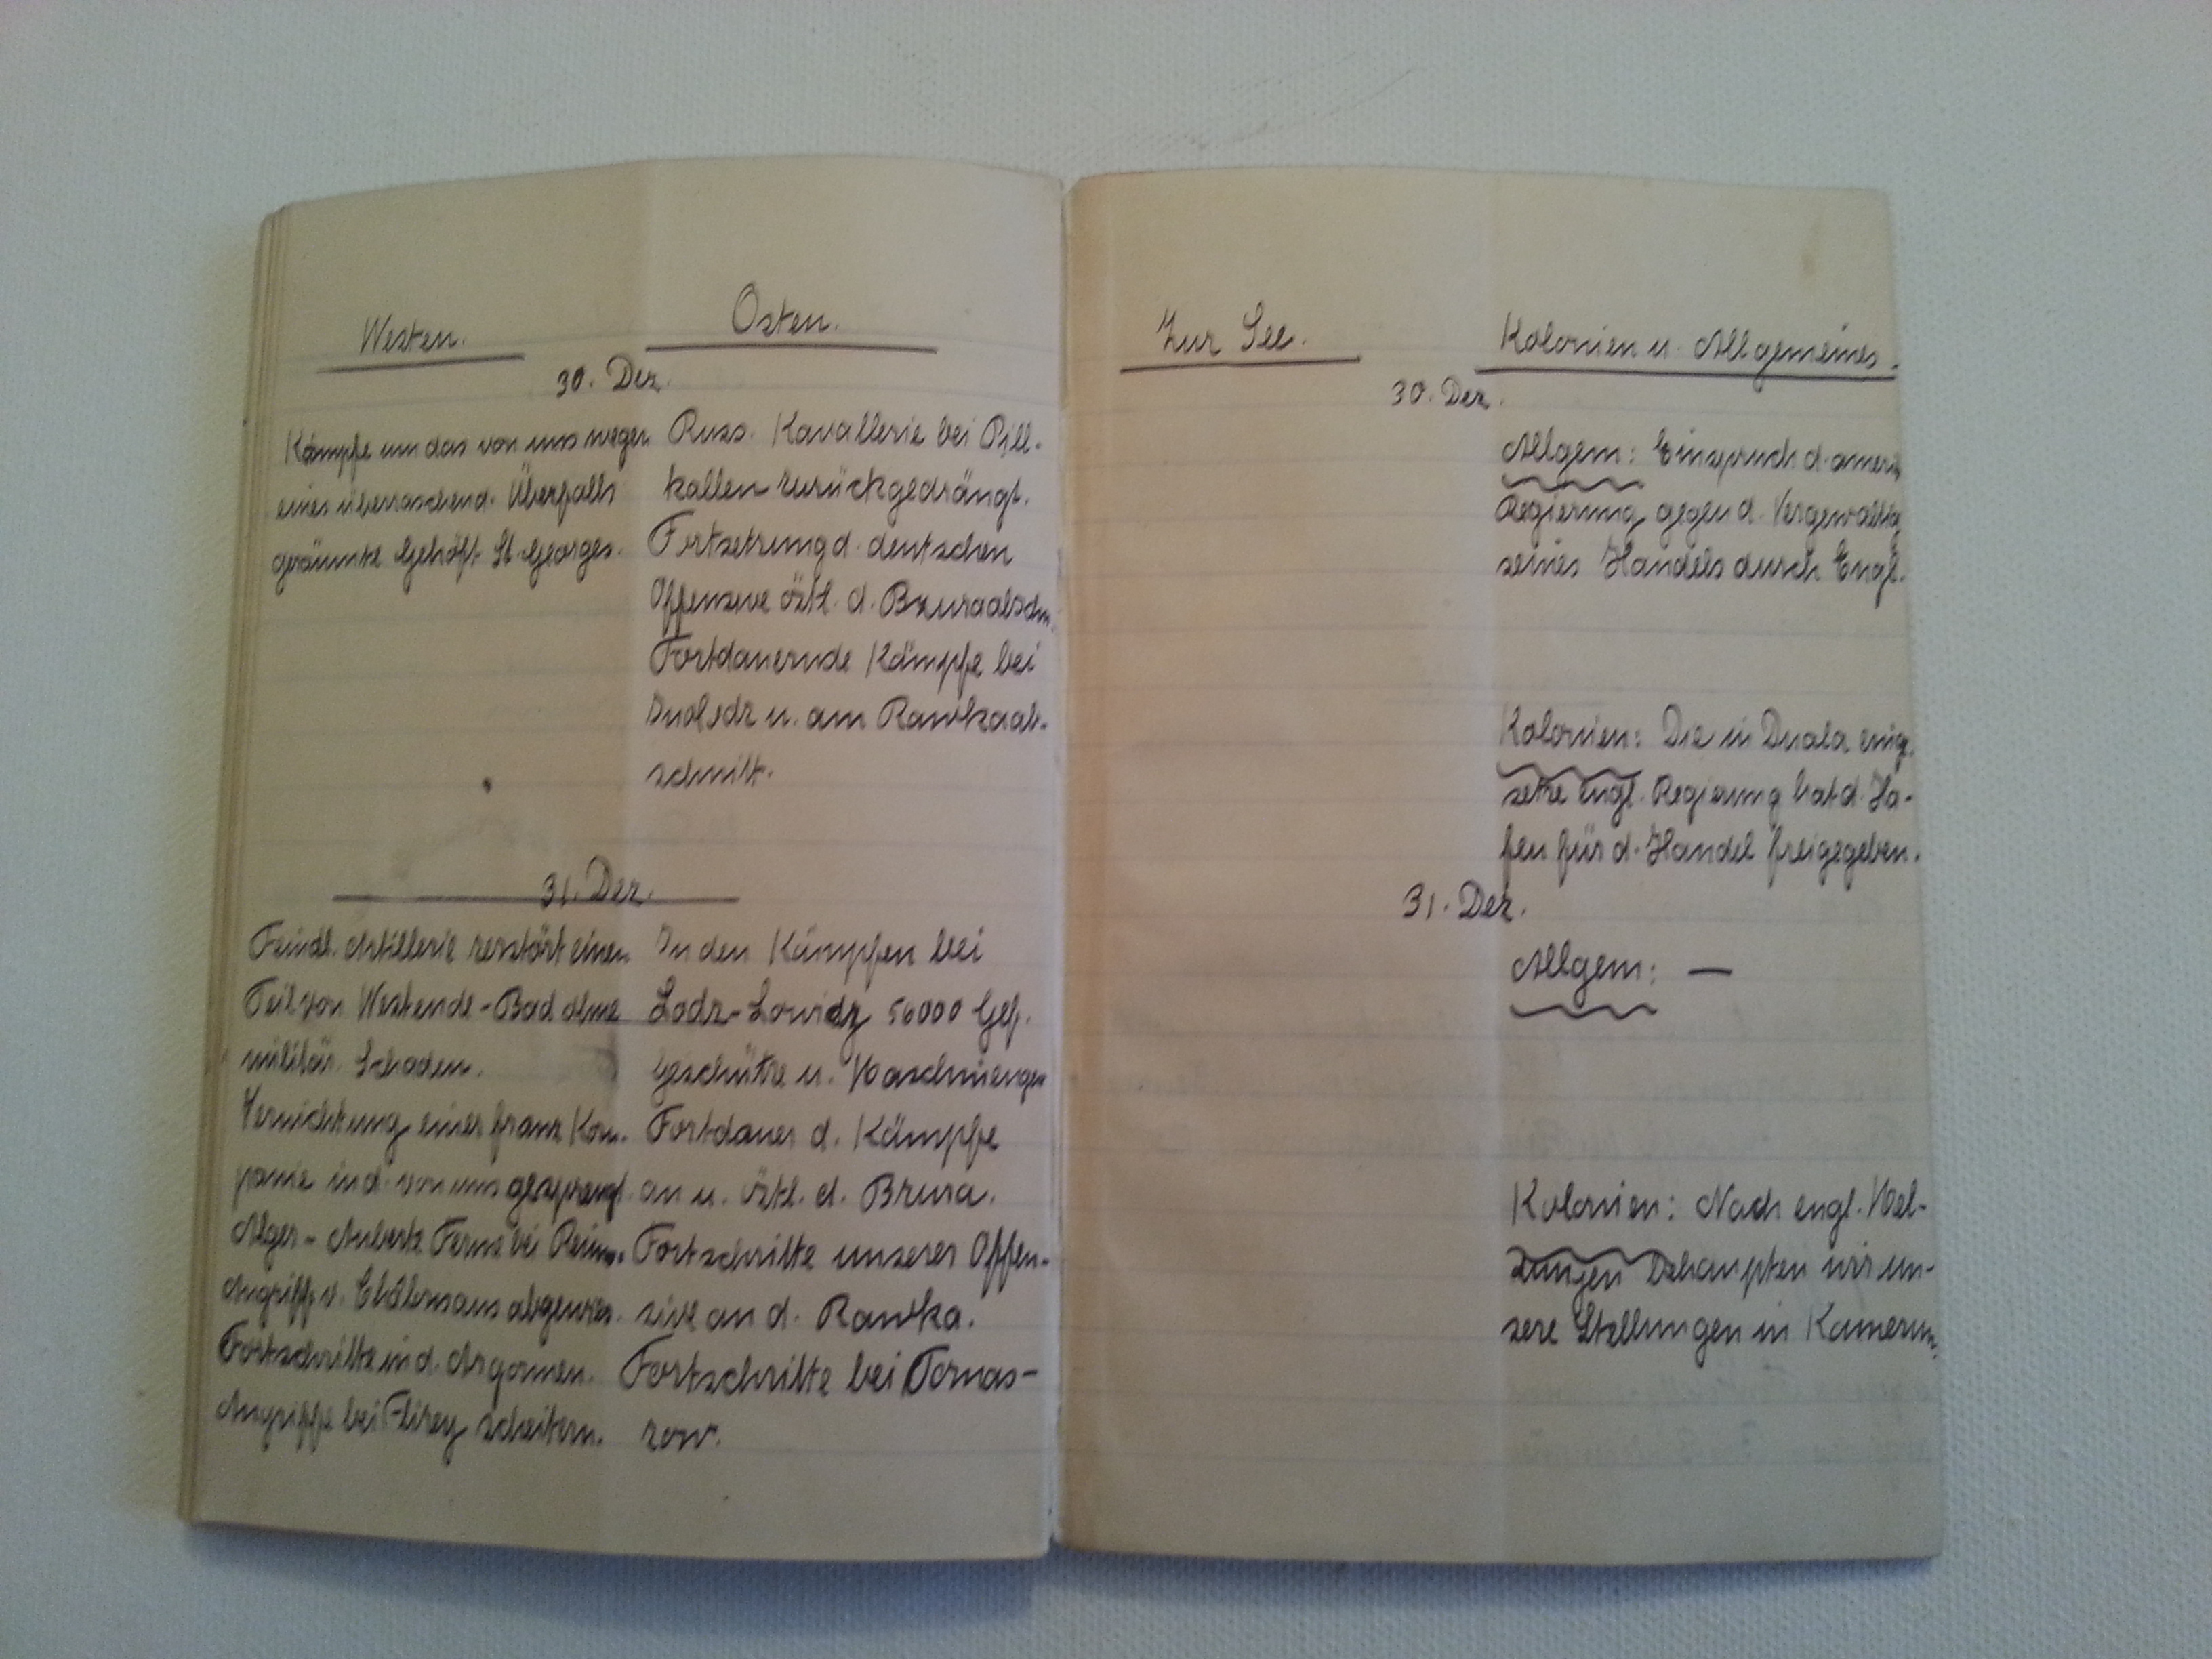 Westen.
Osten.
30. Dez.
Kämpfe um das von uns wegen
eines überraschend. Überfalls
geräumte Gehöft St. Georges.
Russ. Kavallerie bei Pill-
kallen zurückgedrängt.
Fortsetzung d. deutschen
Offensive östl. d. Bzuraabschn.
Fortdauernde Kämpfe bei
Inolodz u. am Rawkaab-
schnitt.
31. Dez.
Feindl. Artillerie zerstört einen
Teil von Westende-Bad ohne
militär. Schaden.
Vernichtung einer franz. Kom-
panie in d. von uns gesprengt.
Alger-Auberge Ferme bei Reims.
Angriff v. Châlons aus abgewies.
Fortschritte in d. Argonnen.
Angriffe bei Flirey scheitern.
In den Kämpfen bei
Lodz-Lowicz 56000 Gef.
Geschütze u. Maschinengew
Fortdauer d. Kämpfe
an u. östl. d. Bzura.
Fortschritte unserer Offen-
sive an d. Rawka.
Fortschritte bei Tomas-
zow.
Zur See.
Kolonien u. Allgemeines.
30. Dez.
Allgem: Einspruch d. amerik
Regierung gegen d. Vergewaltig
seines Handels durch Engl.
Kolonien: Die in Duala einge-
setzte engl. Regierung hat d. Ha-
fen für d. Handel freigegeben.
31. Dez.
Allgem: —
Kolonien: Nach engl. Mel-
dungen behaupten wir un-
sere Stellungen in Kamerun.